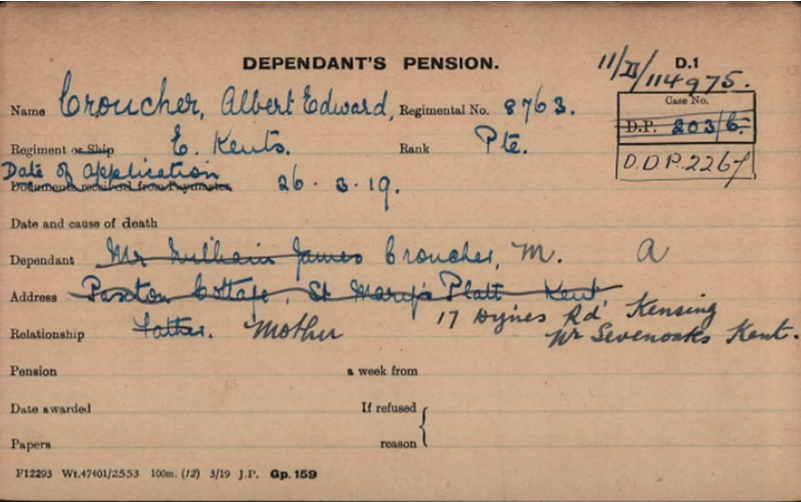 DEPENDANT'S PENSION.
11/D/114975.
D.1
Name Croucher, Albert Edward, Regimental No. 8763.
Case No.
D.P. 203/6.
Regiment or Ship E. Kents. Rank Pte.
D.D.P. 226
Date of Application
Documents received from Paymaster, 26.3.19.
Date and cause of death
Dependant Mr William James Croucher, M. A
Address Paxton Cottage, St Mary's Platt Kent
17 Dynes Rd Kensing
Relationship Father. Mother
Nr Sevenoaks Kent.
Pension a week from
Date awarded If refused
Papers reason
F12293 Wt.47401/2553 100m. (12) 3/19 J.P. Gp. 159